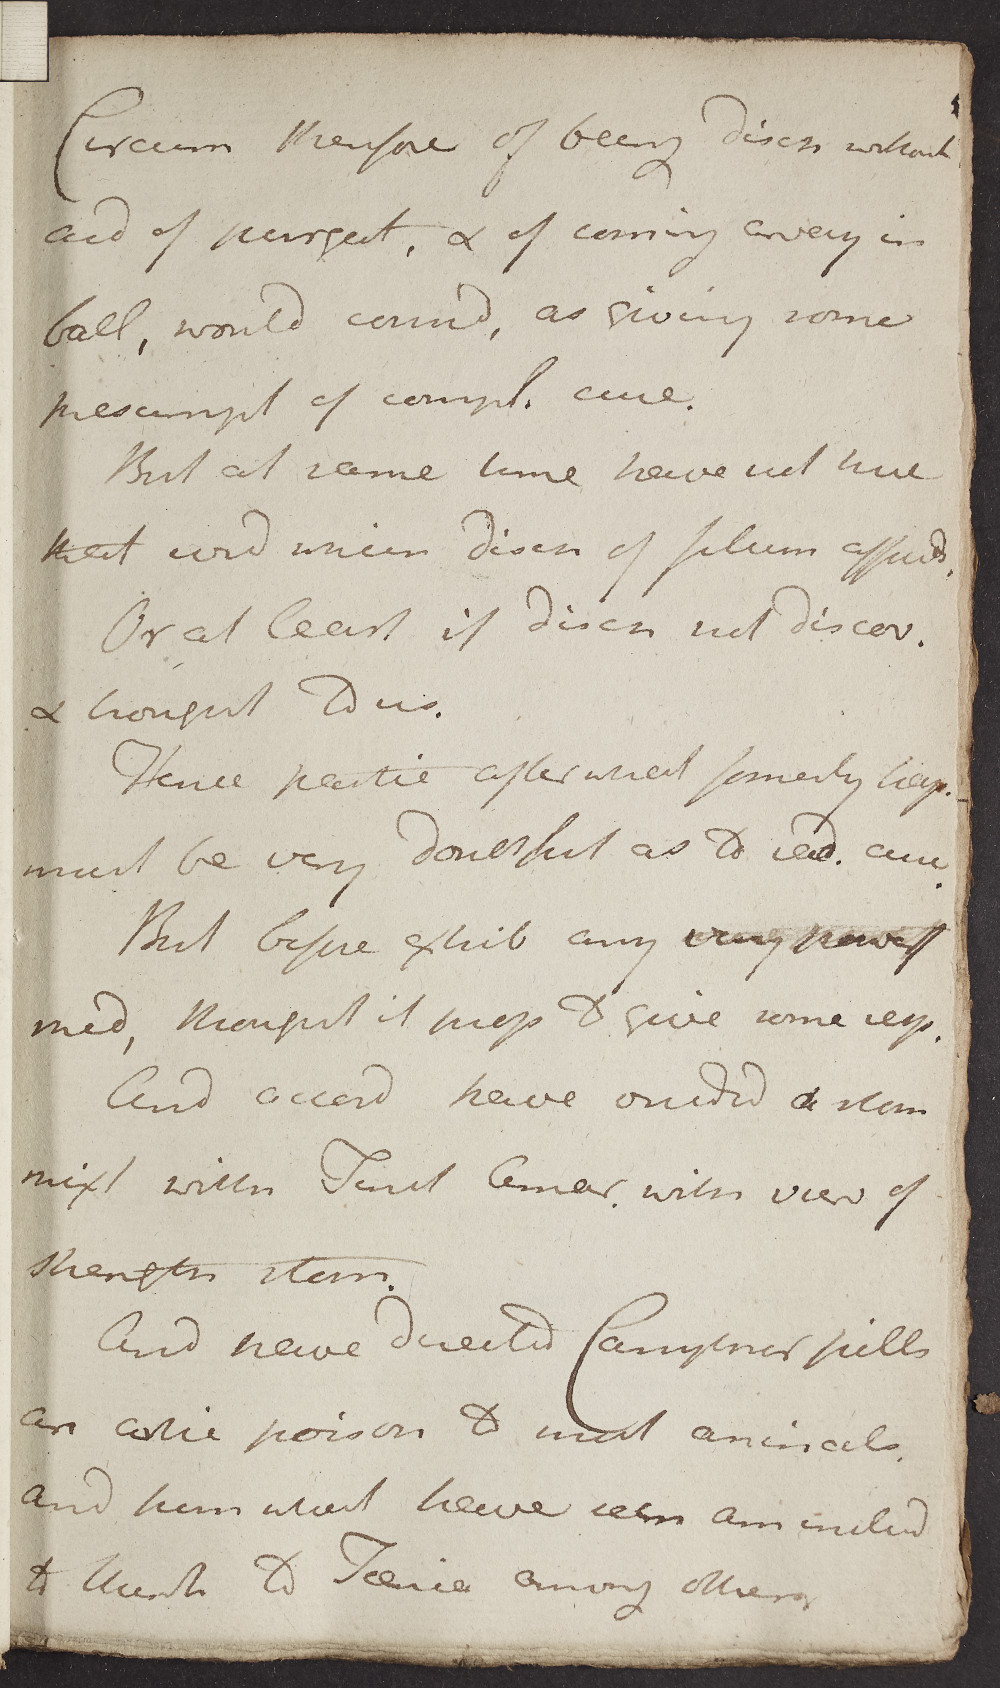 Circum therefore of being disch without
aid of purgat, & of coming away in
ball, would consid, as giving some
presumpt of compl. cure.
But at same time have not here
that evid which disch of filum affords.
Or at least if disch not discov.
& brought to us.
Hence partic after what formerly hap.
must be very doubtful as to rad. cure.
But before exhib any very powerf
med, thought it prop to give some resp.
And accord have ordered a stom
mixt with Tinct Amar. with view of
strength stom.
And have directed Camphor pills
an active poison to most animals,
and from what have seen am inclind
to think to Taenia among others